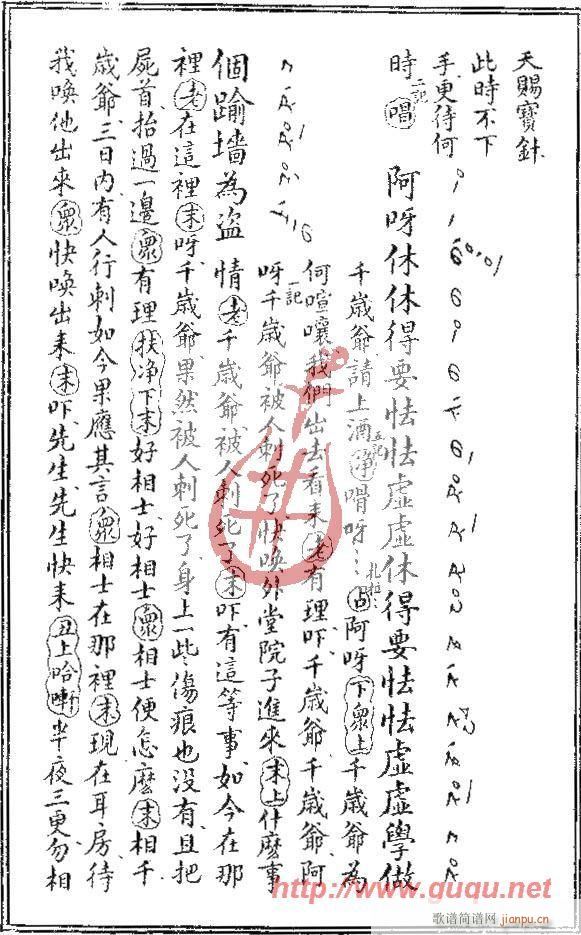 天賜寶針
此時不下
手更待何
時 二記 唱 阿呀休休得要怯怯虛虛休得要怯怯虛虛學做
千歲爺請上酒 淨 嗗呀 占 阿呀 下衆上 千歲爺為
何喧嚷我們出去看來 老 有理吓千歲爺千歲爺阿
呀千歲爺被人刺死了快喚外堂院子進來 末上 什麼事
一記
個踰墻為盜
情 老 千歲爺被人刺死了 末 吓有這等事如今在那
裡 老 在這裡 末 呀千歲爺果然被人刺死了身上一些傷痕也沒有且把
屍首抬過一邊 衆 有理 扶淨下末 好相士好相士 衆 相士便怎麼 末 相千
歲爺三日內有人行刺如今果應其言 衆 相士在那裡 末 現在耳房待
我喚他出來 衆 快喚出來 末 吓先生先生快來 丑上 哈 半夜三更勿相
http://www.guqu.net
歌谱简谱网
jianpu.cn